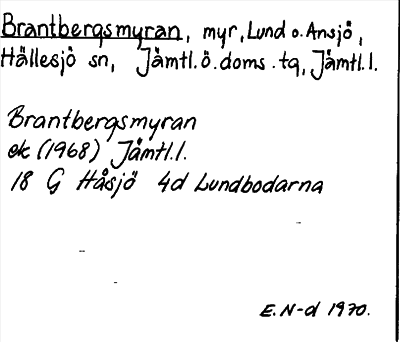 Brantbergsmyran, myr, Lund o. Ansjö,
Hällesjö sn, Jämtl. ö. doms. tg, Jämtl. l.
Brantbergsmyran
ek (1968) Jämtl. l.
18 G Håsjö 4d Lundbodarna
E. N-d 1970.